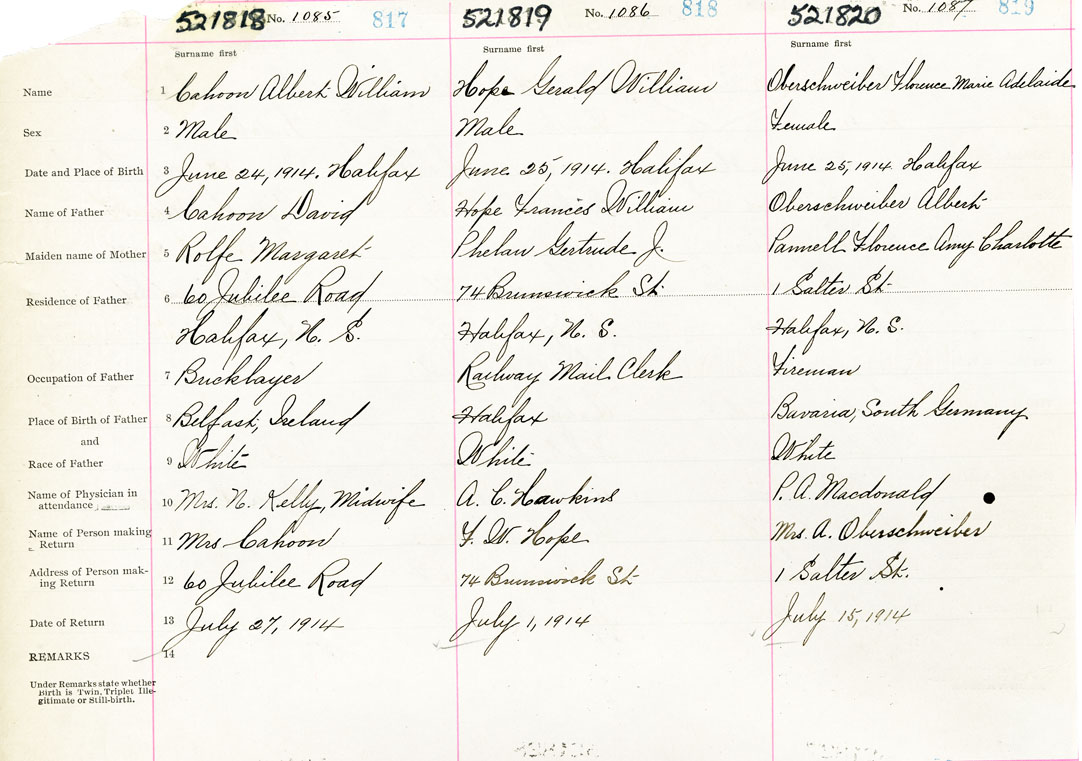 521818 No. 1085 817 521819 No. 1086 818 521820 No. 1087 819
Surname first Surname first Surname first
Name 1 Cahoon Albert William Hope Gerald William Oberschweiber Florence Marie Adelaide
Sex 2 Male Male Female
Date and Place of Birth 3 June 24, 1914. Halifax June 25, 1914. Halifax June 25, 1914. Halifax
Name of Father 4 Cahoon David Hope Frances William Oberschweiber Albert
Maiden name of Mother 5 Rolfe Margaret Phelan Gertrude J. Pannell Florence Amy Charlotte
Residence of Father 6 60 Jubilee Road 74 Brunswick St. 1 Salter St.
Halifax, N. S. Halifax, N. S. Halifax, N. S.
Occupation of Father 7 Bricklayer Railway Mail Clerk Fireman
Place of Birth of Father 8 Belfast, Ireland Halifax Bavaria, South Germany
and
Race of Father 9 White White White
Name of Physician in
attendance 10 Mrs. N. Kelly, Midwife A. C. Hawkins P. A. Macdonald
Name of Person making
Return 11 Mrs Cahoon F. W. Hope Mrs. A. Oberschweiber
Address of Person mak-
ing Return 12 60 Jubilee Road 74 Brunswick St. 1 Salter St.
Date of Return 13 July 27, 1914 July 1, 1914 July 15, 1914
REMARKS 14
Under Remarks state whether
Birth is Twin, Triplet Ille-
gitimate or Still-birth.